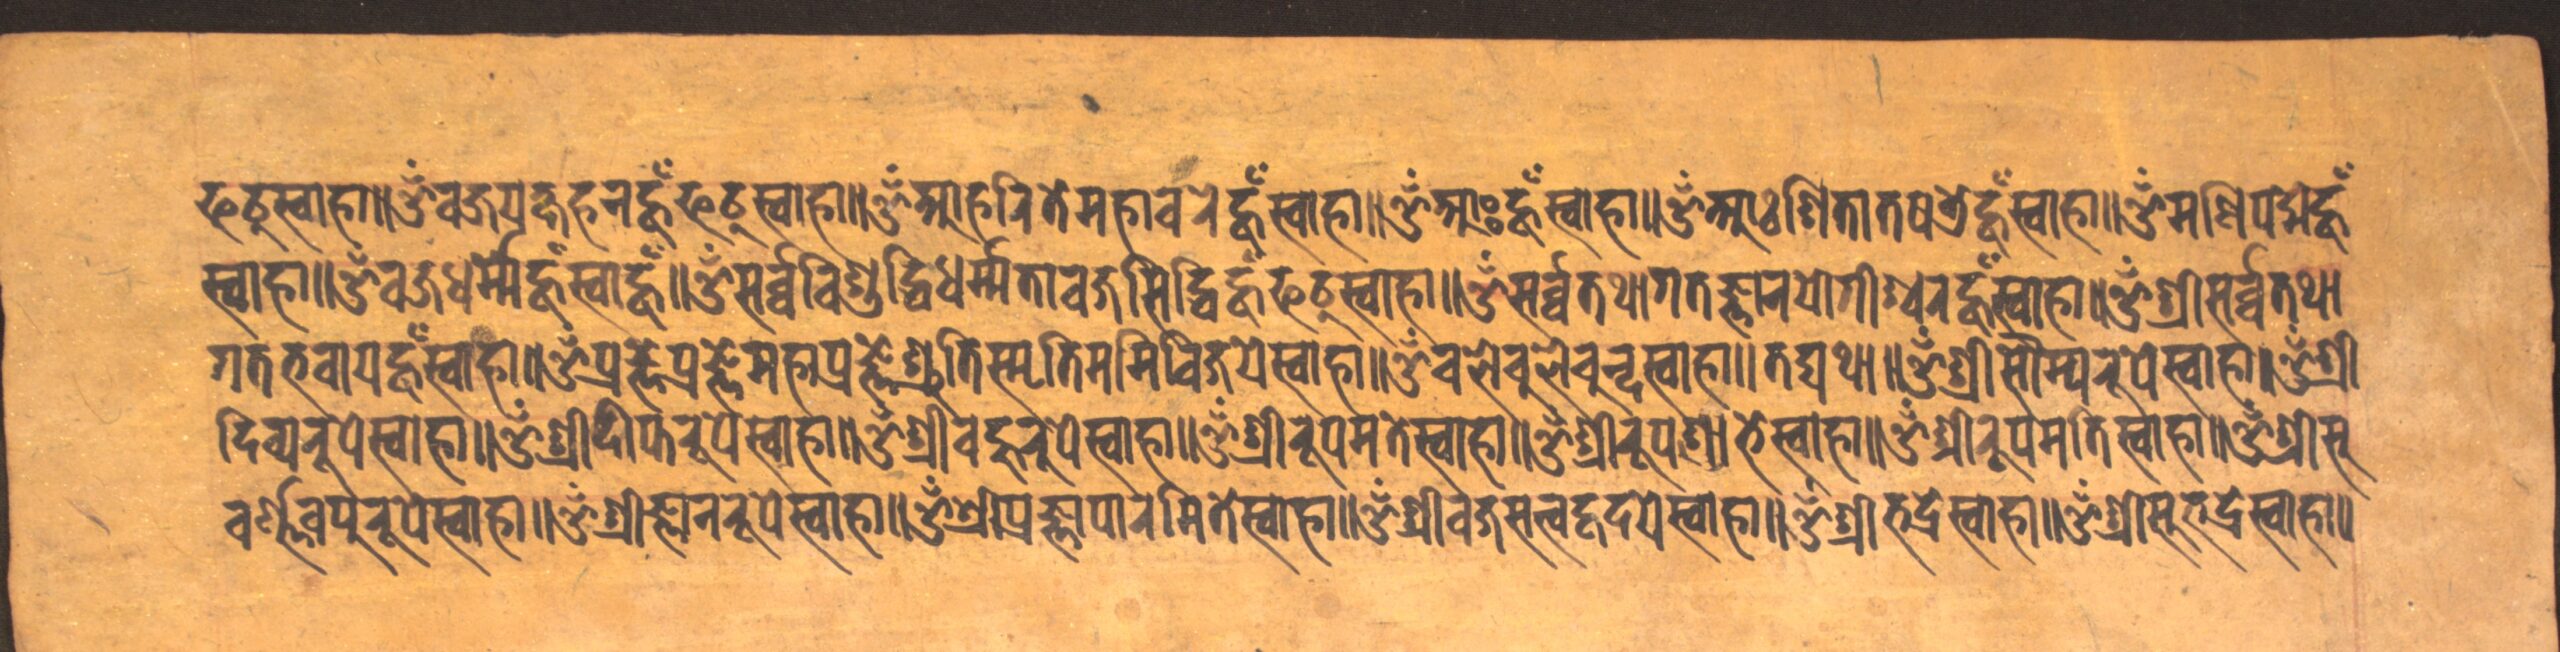 फट्स्वाहा॥ ॐवज्रयक्षहनहूँफट्स्वाहा॥ ॐआहरितेमहावरेहूँस्वाहा॥ ॐआःहूँस्वाहा॥ ॐआः हूँस्वाहा॥ ॐमणिपद्मेहूँ
स्वाहा॥ ॐवज्रधर्म्मेहूँस्वाहूँ॥ ॐसर्व्वविशुद्धिधर्म्मतावज्रसिद्धिहूँफट्स्वाहा॥ ॐसर्व्वतथागतज्ञानयोगीश्वरहूँस्वाहा॥ ॐश्रीसर्व्वतथा
गतभवायहूँस्वाहा॥ ॐप्रज्ञेप्रज्ञेमहाप्रज्ञेश्रुतिस्मृतिममिविजयेस्वाहा॥ ॐ स्वाहा॥ तद्यथा॥ ॐश्रीसौम्यरुपेस्वाहा॥ ॐश्री
दिव्यरुपेस्वाहा॥ ॐश्रीदीप्तरुपेस्वाहा॥ ॐश्रीवहुरुपेस्वाहा॥ ॐश्रीरूपमतेस्वाहा॥ ॐश्री स्वाहा॥ ॐश्रीरूपमतिस्वाहा॥ ॐश्रीसू
वर्ण्णवपुरुपेस्वाहा॥ ॐश्रीज्ञानरुपेस्वाहा॥ ॐश्रीप्रज्ञापारमितेस्वाहा॥ ॐश्रीवज्रसत्त्वहृदयेस्वाहा॥ ॐश्रीभद्रेस्वाहा॥ ॐश्रीसुभद्रेस्वाहा॥